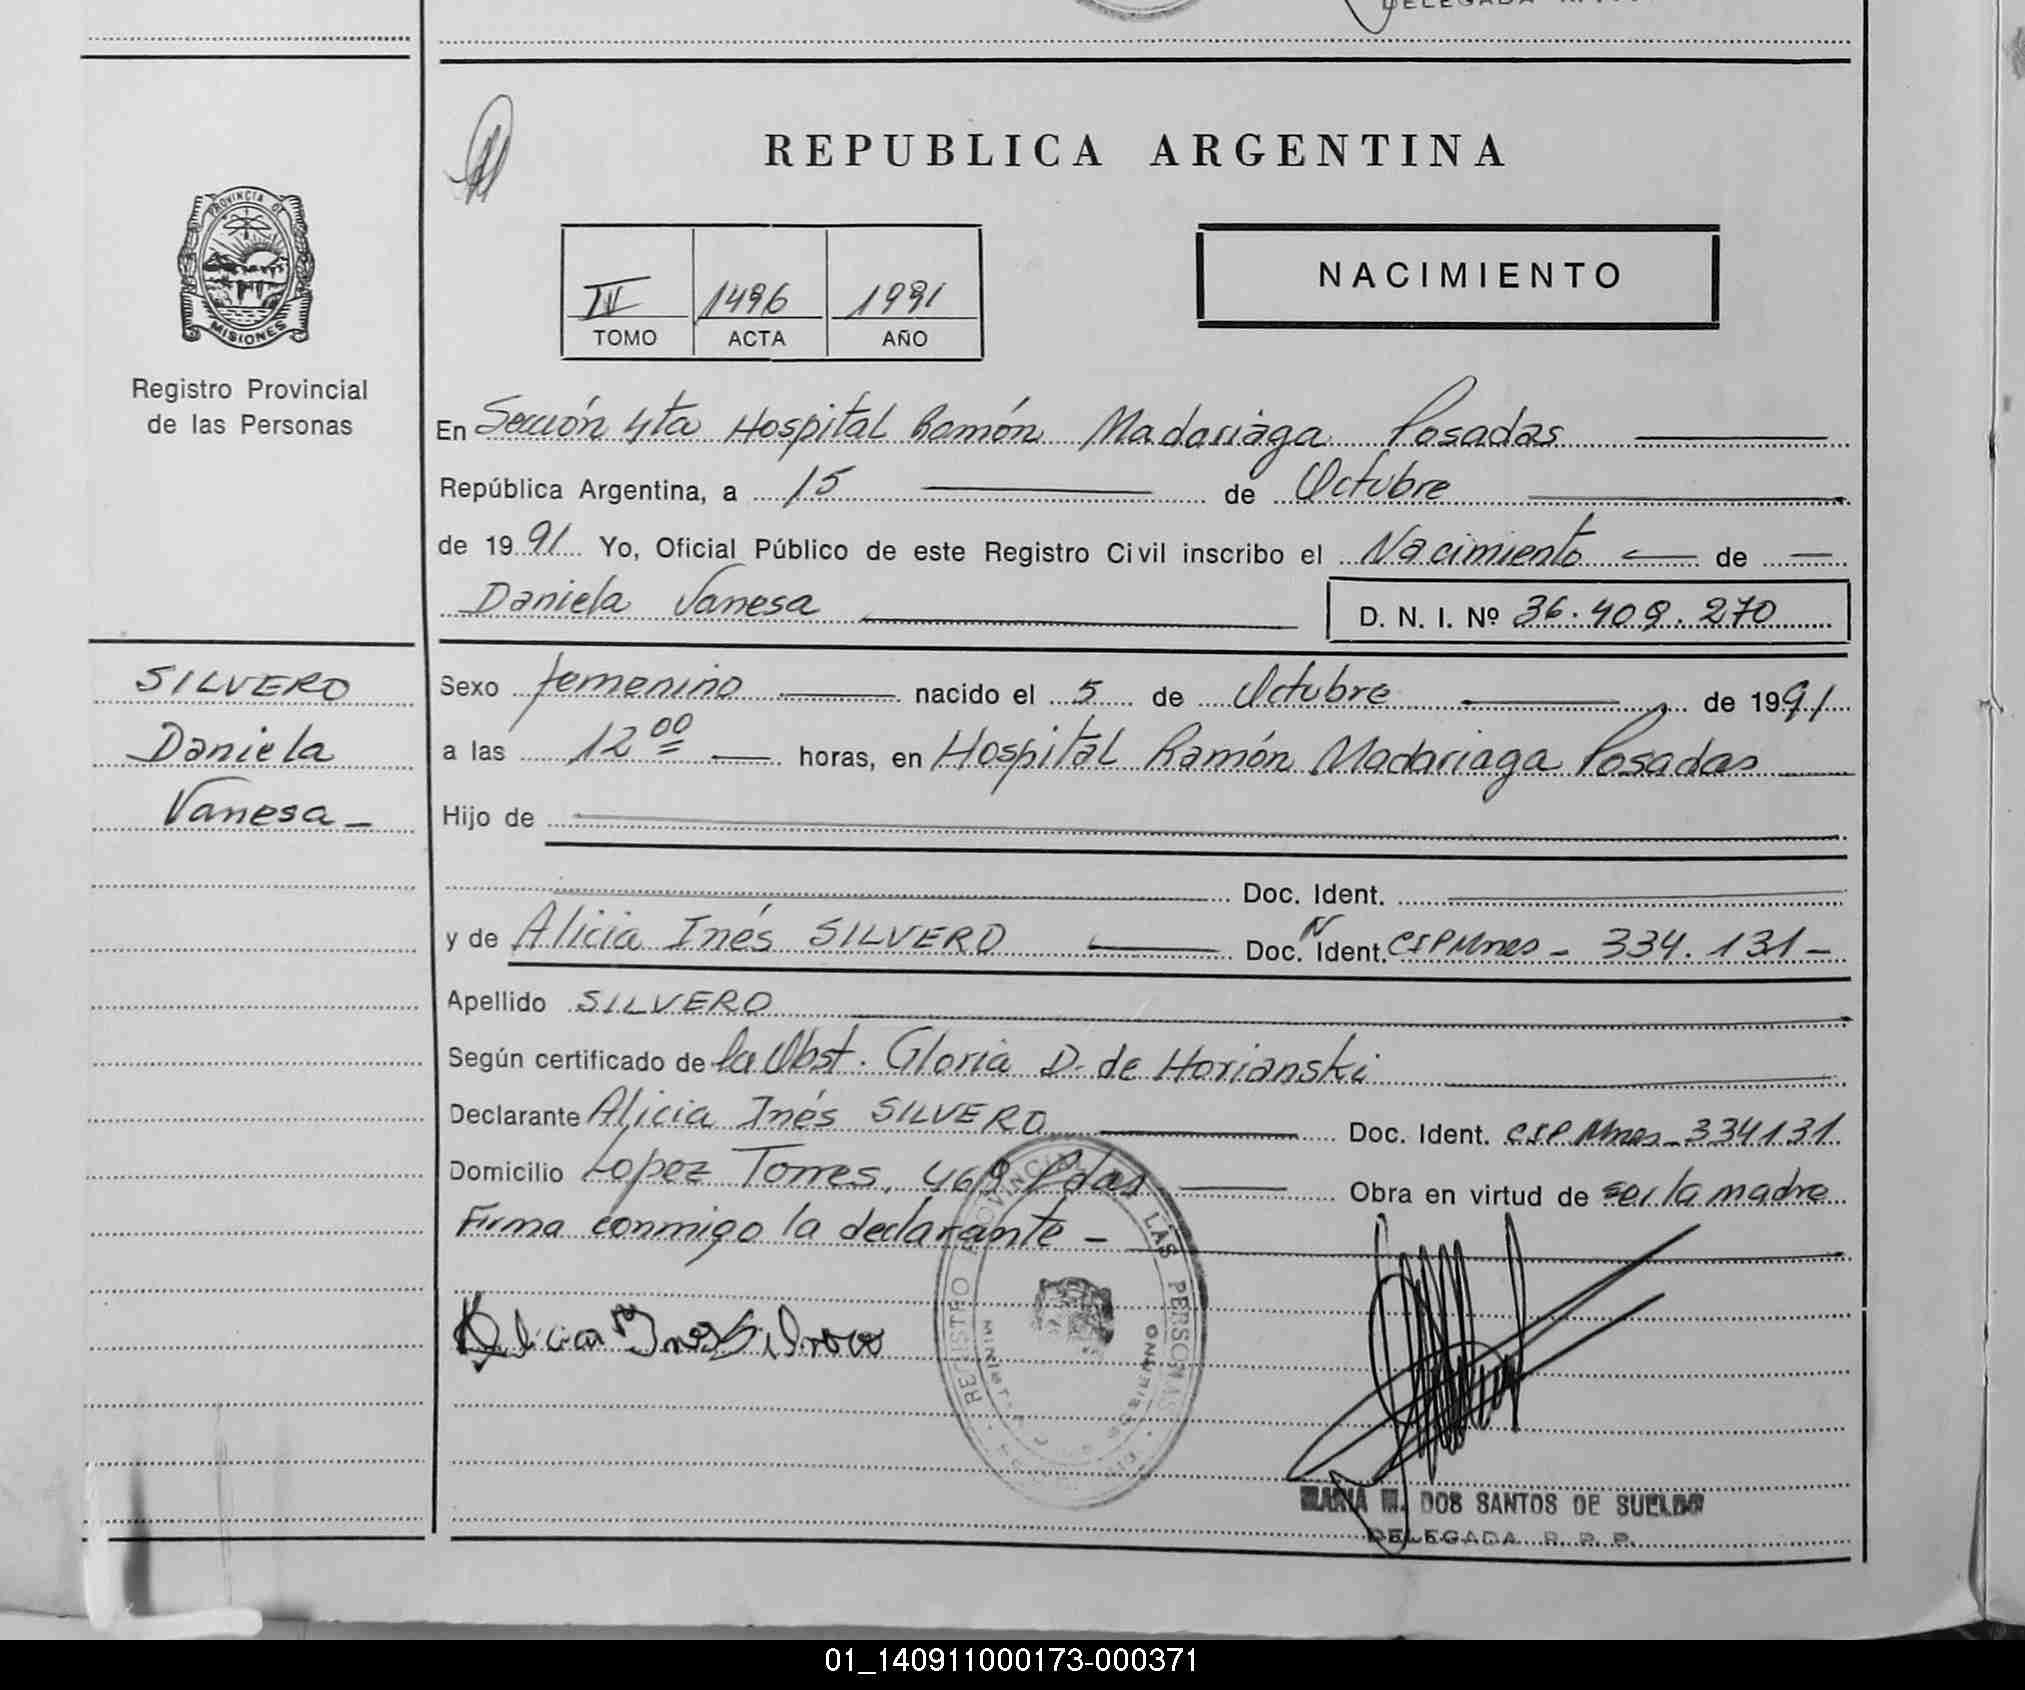 REPUBLICA ARGENTINA
PROVINCIA DE
MISIONES
Registro Provincial
de las Personas
IV 1496 1991
TOMO ACTA AÑO
NACIMIENTO
En Sección 4ta Hospital Ramón Madariaga Posadas
República Argentina, a 15 de Octubre
de 1991 Yo, Oficial Público de este Registro Civil inscribo el Nacimiento de
Daniela Vanesa D. N. I. Nº 36.409.270
SILVERO
Daniela
Vanesa
Sexo femenino nacido el 5 de Octubre de 1991
a las 12 00 horas, en Hospital Ramón Madariaga Posadas
Hijo de
Doc. Ident.
y de Alicia Inés SILVERO Doc. Ident. CIPMnes - 334.131-
Apellido SILVERO
Según certificado de la Obst. Gloria D. de Horianski
Declarante Alicia Inés SILVERO Doc. Ident. CIP Mnes - 334131
Domicilio Lopez Torres 469 Pdas Obra en virtud de ser la madre
Firma conmigo la declarante -
REGISTRO PROVINCIAL DE LAS PERSONAS
GOBIERNO
MARIA M. DOS SANTOS DE SUELDO
DELEGADA R. P. P.
01_140911000173-000371